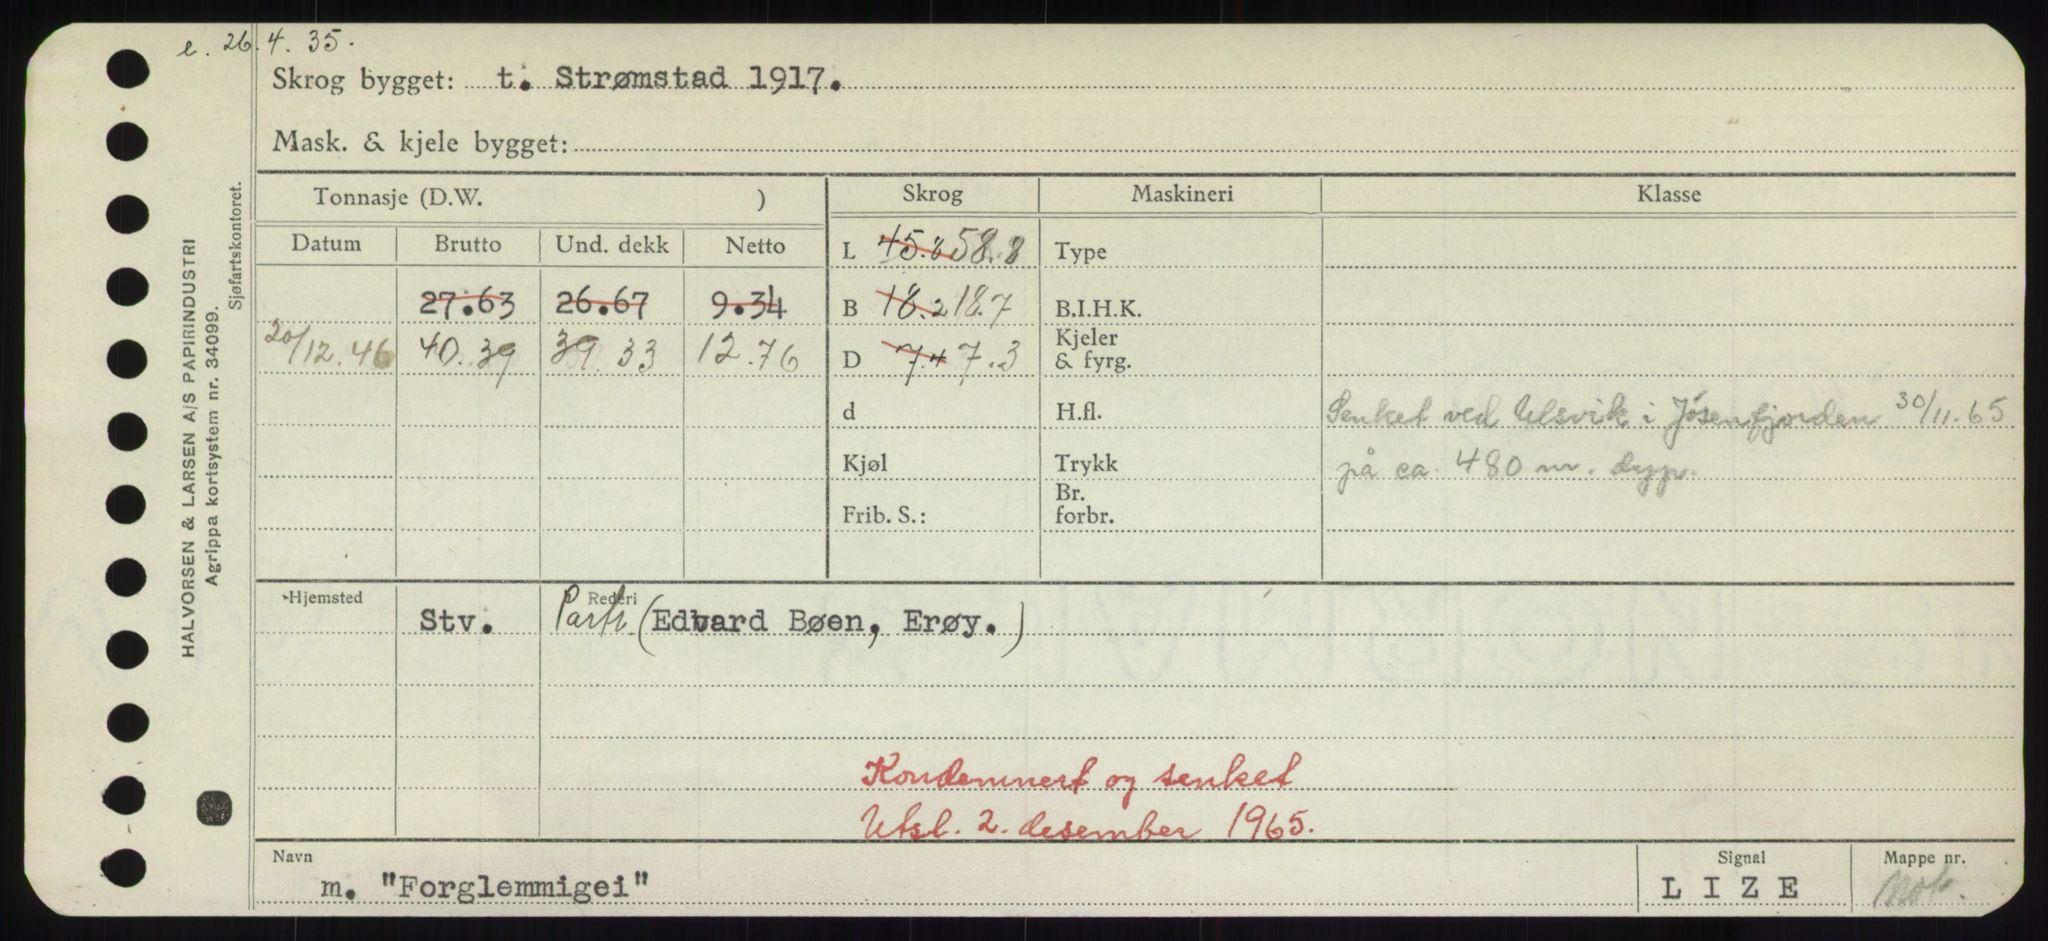 e. 26.4.35.
Skrog bygget: t. Strømstad 1917.
Mask. & kjele bygget:
HALVORSEN & LARSEN A/S PAPIRINDUSTRI
Agrippa kortsystem nr. 34099.
Sjøfartskontoret.
Tonnasje (D.W. ) Skrog Maskineri Klasse
Datum Brutto Und. dekk Netto L 45.8 58.8 Type
27.63 26.67 9.34 B 18.2 18.7 B.I.H.K.
20/12.46 40.39 39.33 12.76 D 7.4 7.3 Kjeler & fyrg.
d H.fl. Senket ved Ulsvik i Jøsenfjorden 30/11.65
Kjøl Trykk på ca. 480 m. dyp.
Frib. S.: Br. forbr.
Hjemsted Rederi
Stv. Partr. (Edvard Bøen, Erøy.)
Kondemnert og senket
Utsl. 2. desember 1965.
Navn Signal Mappe nr.
m. "Forglemmigei" LIZE Mot.